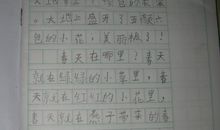 大地上盛开了五颜六
色的小花，美丽极了！
春天在哪里？春天
就在绿绿的小草里，春
天就在红红的小花里，
春天就在燕子带来的春